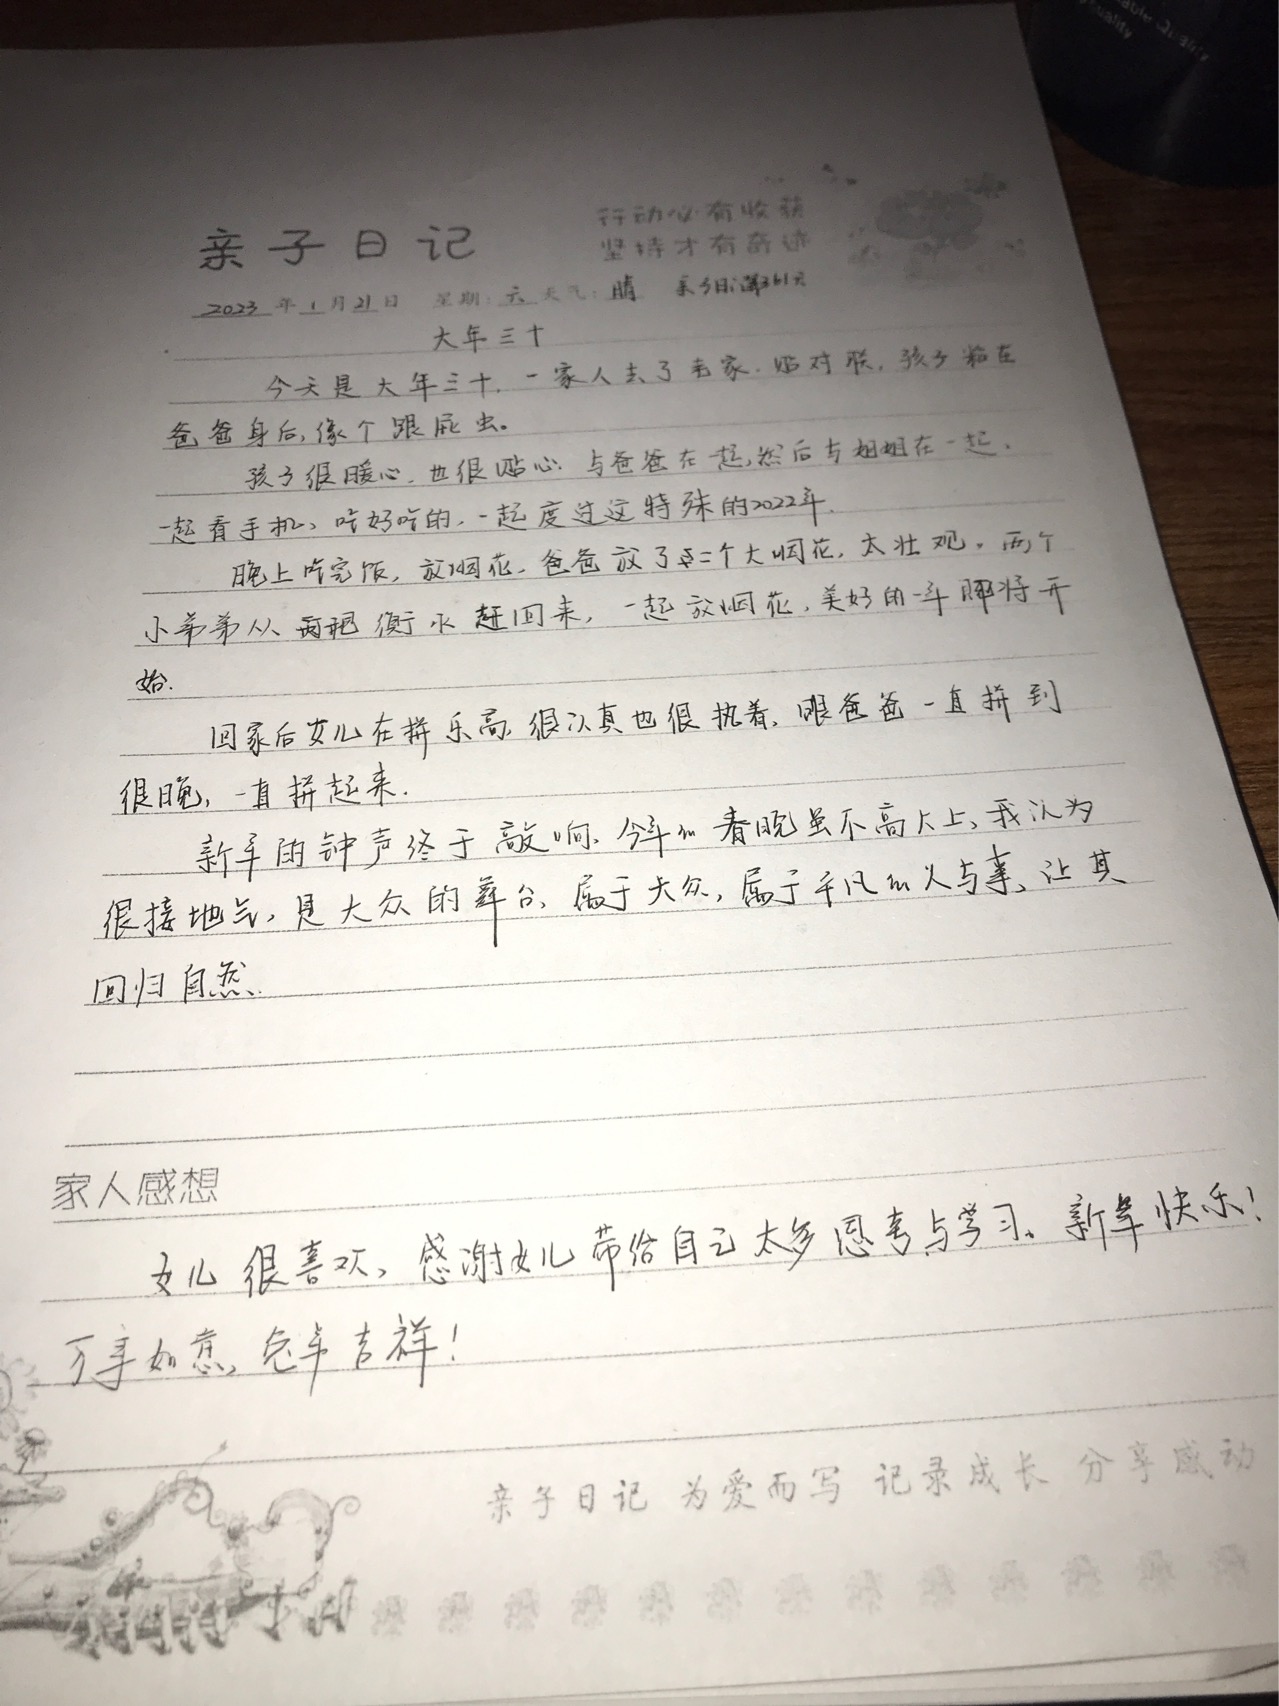 able Quality
Quality
行动必有收获
亲子日记
坚持才有奇迹
2023年1月21日 星期:六 天气:晴 亲子日记第361天
大年三十
今天是大年三十,一家人去了老家,贴对联,孩子粘在
爸爸身后,像个跟屁虫。
孩子很暖心,也很贴心,与爸爸在一起,然后与姐姐在一起,
一起看手机、吃好吃的,一起度过这特殊的2022年.
晚上吃完饭,放烟花,爸爸放了二个大烟花,太壮观。两个
小弟弟从衡水赶回来,一起放烟花,美好的一年即将开
始.
回家后女儿在拼乐高,很认真也很执着,跟爸爸一直拼到
很晚,一直拼起来.
新年的钟声终于敲响,今年的春晚虽不高大上,我认为
很接地气,是大众的舞台,属于大众,属于平凡的人与事,让其
回归自然.
家人感想
女儿很喜欢,感谢女儿带给自己太多思考与学习。新年快乐!
万事如意,兔年吉祥!
亲子日记 为爱而写 记录成长 分享感动